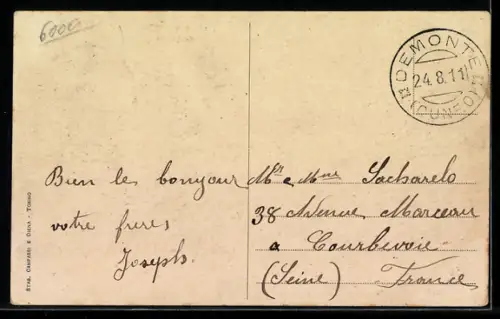 6000
DEMONTE
24.8.11
(CUNEO)
Bien le bonjour
votre freres
Joseph.
Mr e Mme Sacharelo
38 Avenue Marceau
a Courbevoie
(Seine) France
STAB. CHARVET E CUCCO - TORINO